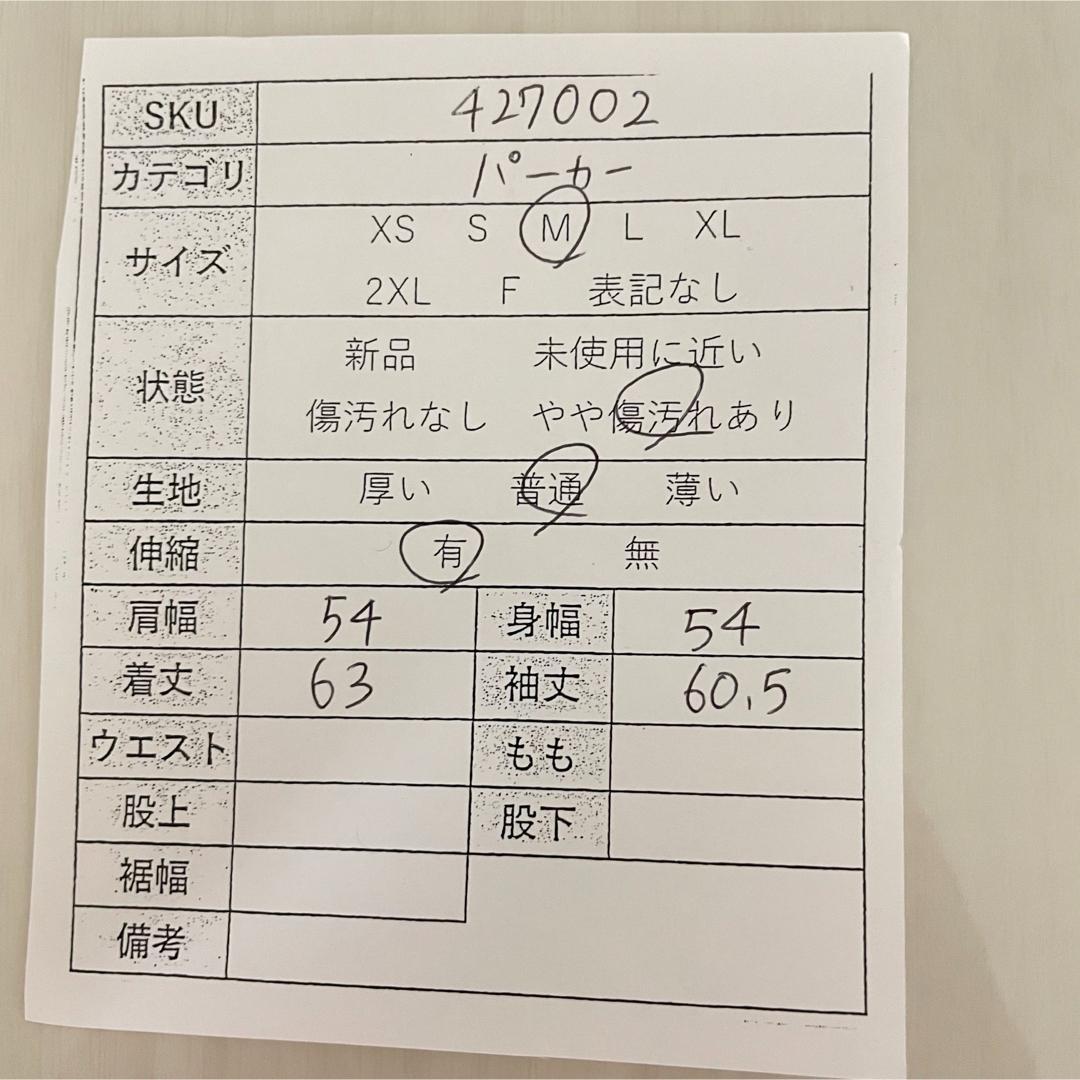 SKU 427002
カテゴリ パーカー
サイズ XS S M L XL
2XL F 表記なし
状態 新品 未使用に近い
傷汚れなし やや傷汚れあり
生地 厚い 普通 薄い
伸縮 有 無
肩幅 54 身幅 54
着丈 63 袖丈 60.5
ウエスト もも
股上 股下
裾幅
備考